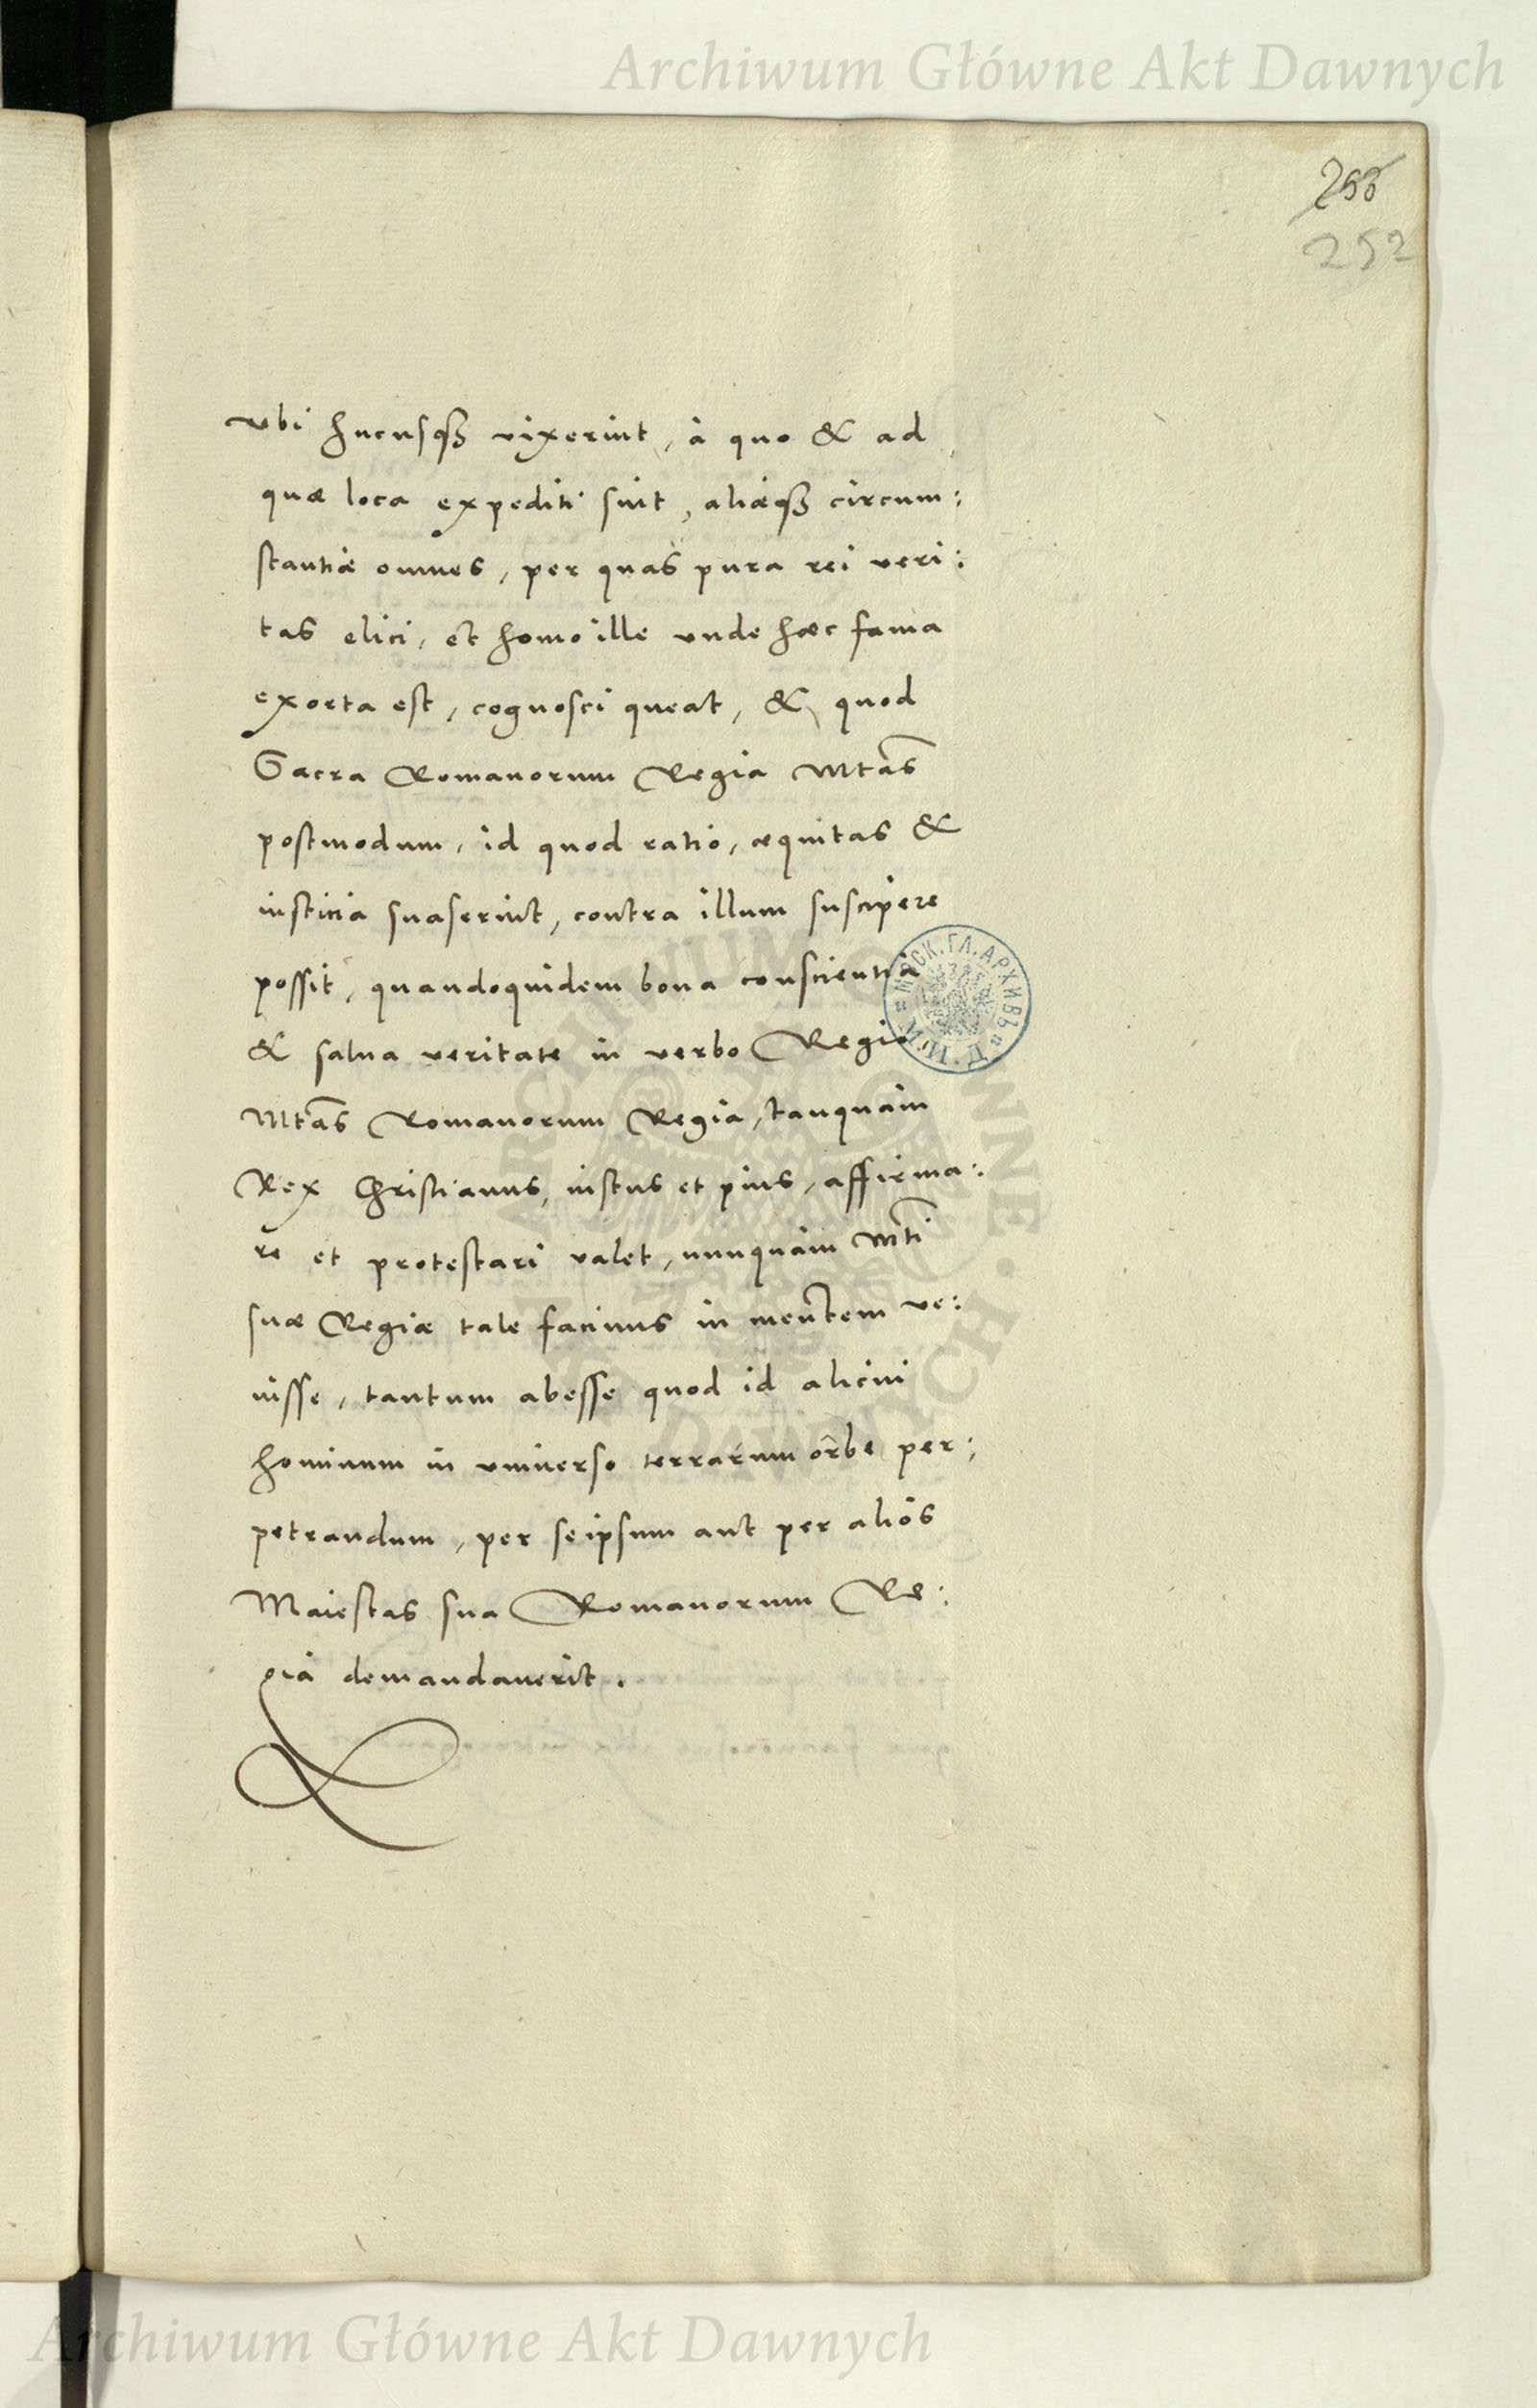 Archiwum Główne Akt Dawnych
253
252
Vbi hucusqꝫ vixerint, à quo & ad
quæ loca expediti sint, aliæqꝫ circum:
stantiæ omnes, per quas pura rei veri:
tas elici, et homo ille unde hæc fama
exorta est, cognosci queat, & quod
Sacra Romanorum Regia Mtas
postmodum, id quod ratio, æquitas &
iusticia suaserint, contra illum suscipere
possit, quandoquidem bona conscientia
& salua veritate in verbo Regio
Mtas Romanorum Regia, tanquam
Rex Christianus, iustus et pius, affirma:
re et protestari valet, nunquam Mti
suæ Regiæ tale facinus in mentem ve:
nisse, tantum abesse quod id alicui
hominum in vniuerso terrarum orbe per:
petrandum, per seipsum aut per alios
Maiestas sua Romanorum Re:
gia demandauerit.
МОСК. ГЛ. АРХИВЪ
М.И.Д.
ARCHIWUM GŁÓWNE AKT DAWNYCH
Archiwum Główne Akt Dawnych